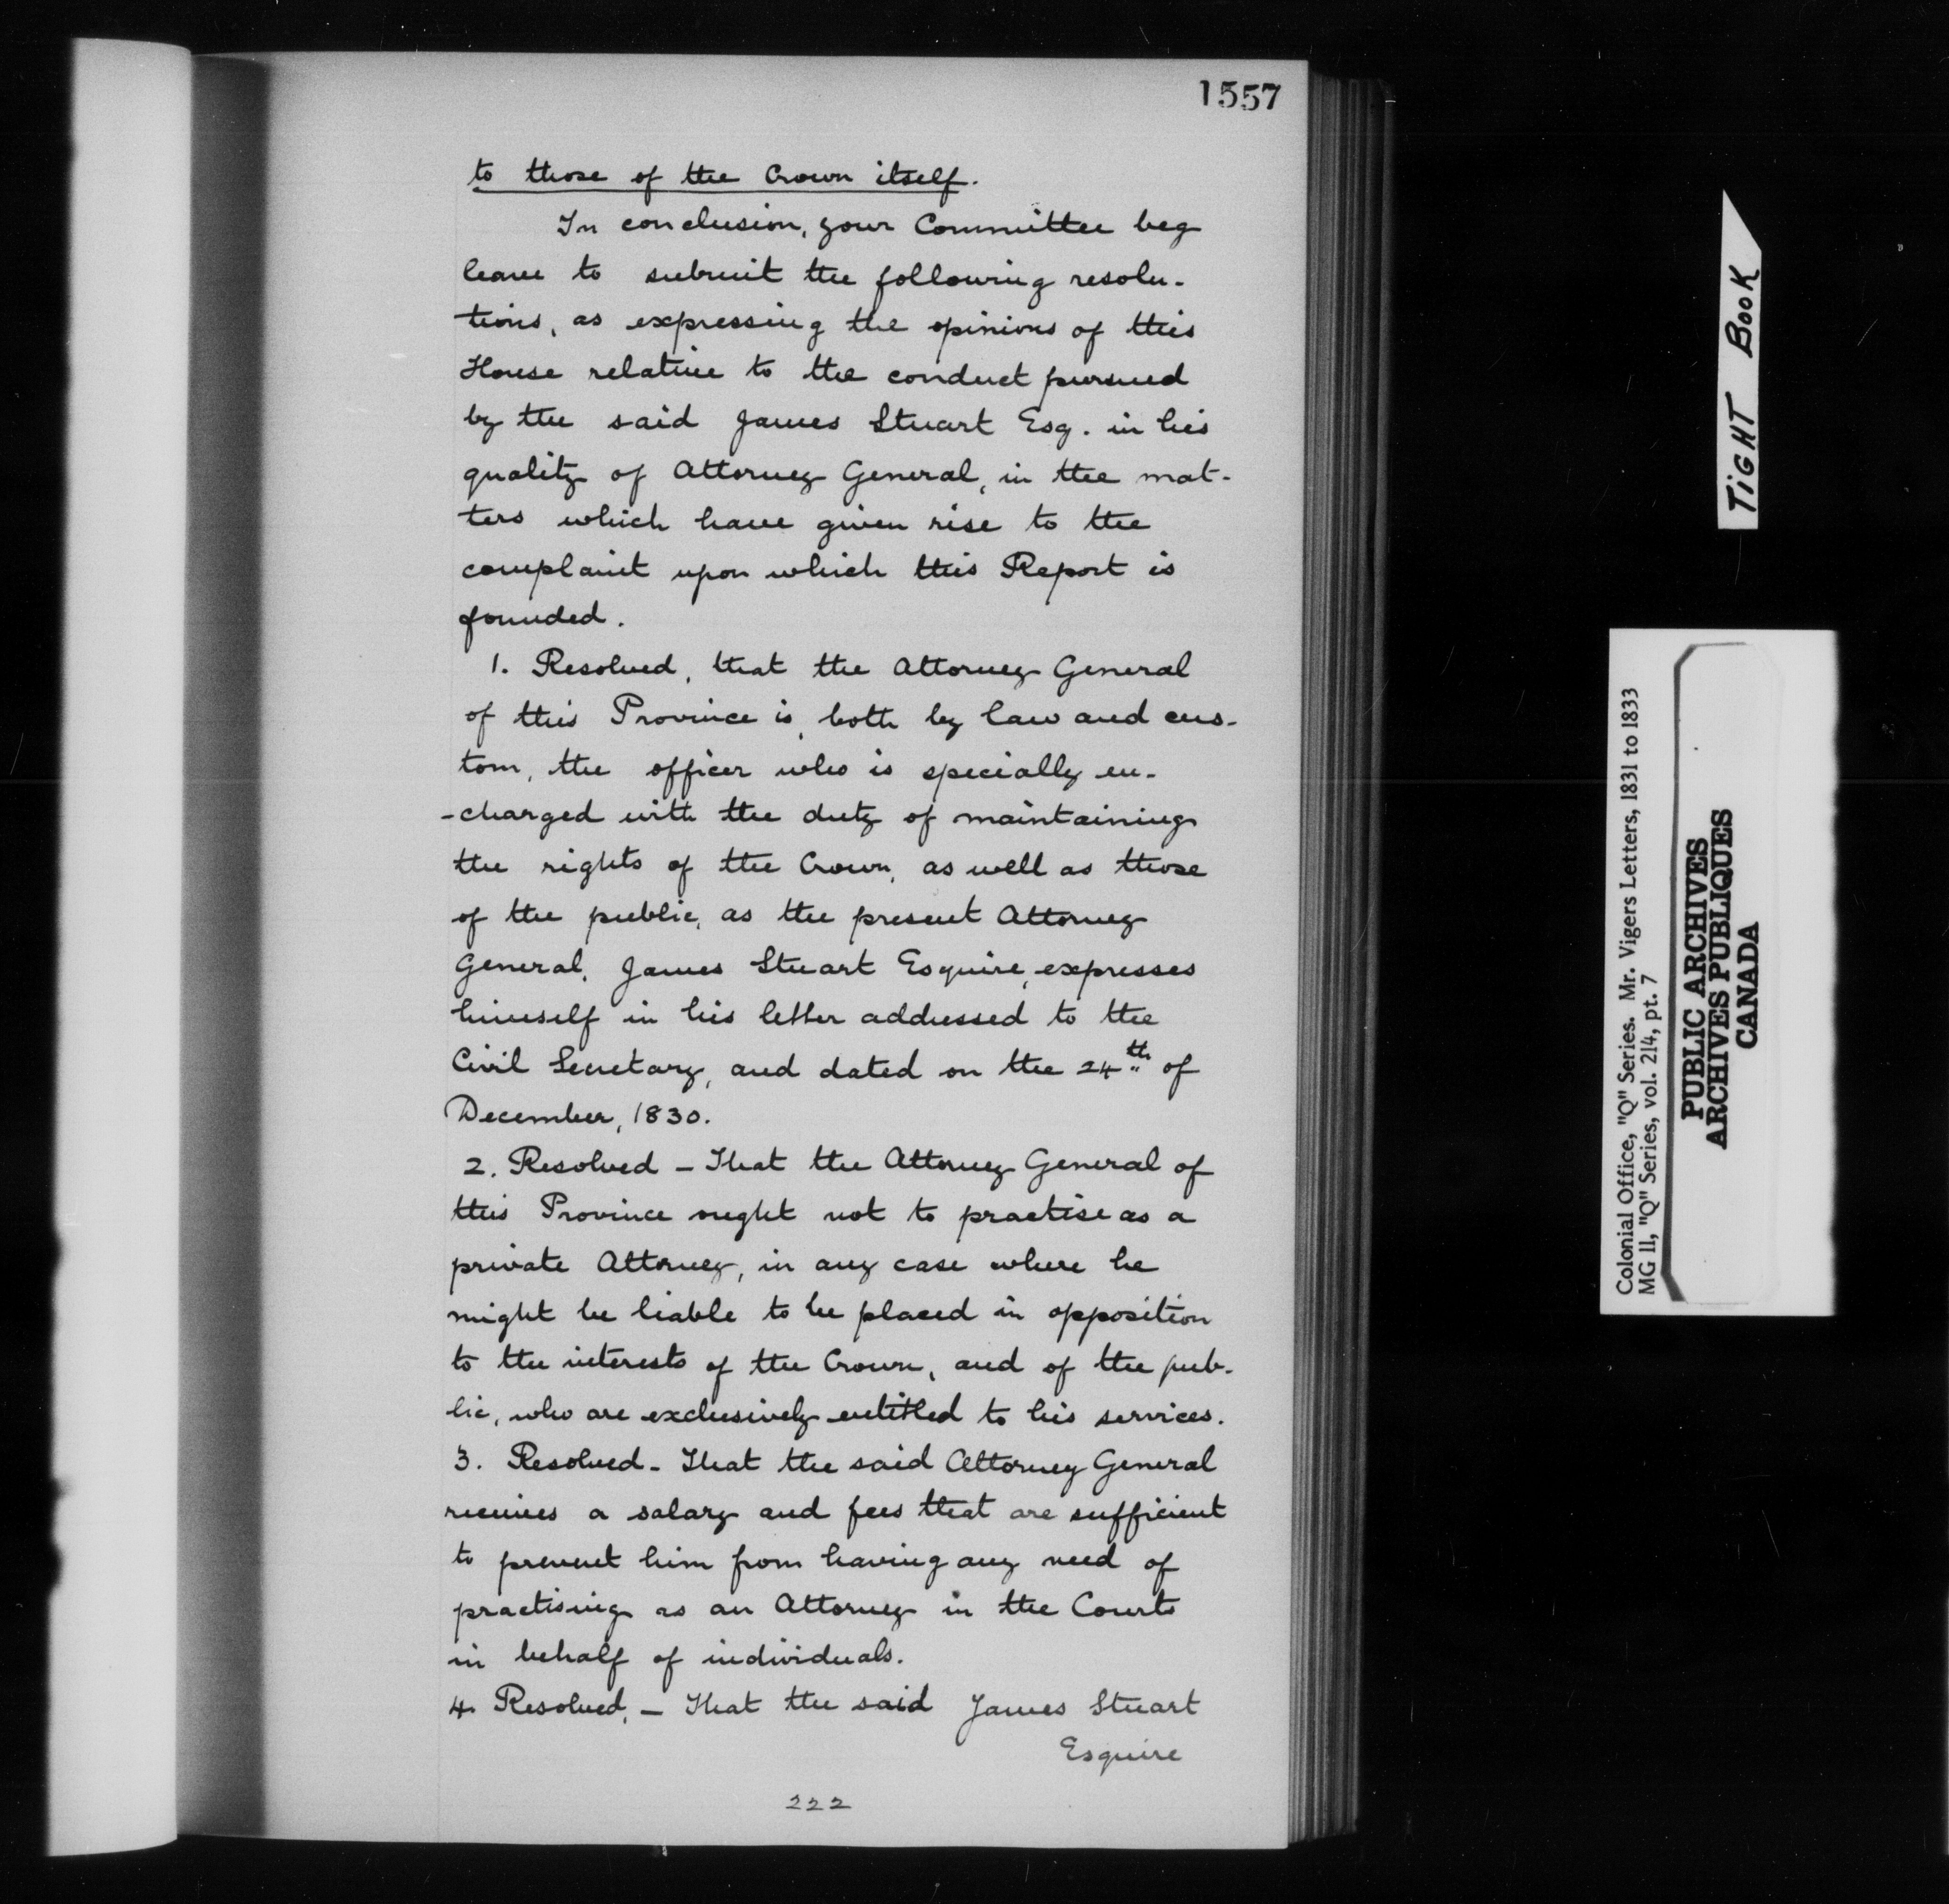 1557
to those of the Crown itself.
In conclusion, your Committee beg
leave to submit the following resolu-
tions, as expressing the opinions of this
House relative to the conduct pursued
by the said James Stuart Esq. in his
quality of Attorney General, in the mat-
ters which have given rise to the
complaint upon which this Report is
founded.
1. Resolved, that the Attorney General
of this Province is, both by law and cus-
tom, the officer who is specially en-
-charged with the duty of maintaining
the rights of the Crown, as well as those
of the public, as the present Attorney
General, James Stuart Esquire, expresses
himself in his letter addressed to the
Civil Secretary, and dated on the 24th of
December, 1830.
2. Resolved - That the Attorney General of
this Province ought not to practise as a
private Attorney, in any case where he
might be liable to be placed in opposition
to the interests of the Crown, and of the pub-
lic, who are exclusively entitled to his services.
3. Resolved - That the said Attorney General
receives a salary and fees that are sufficient
to prevent him from having any need of
practising as an Attorney in the Courts
in behalf of individuals.
4. Resolved, - That the said James Stuart
Esquire
222
TIGHT BOOK
Colonial Office, "Q" Series. Mr. Vigers Letters, 1831 to 1833
MG 11, "Q" Series, vol. 214, pt. 7
PUBLIC ARCHIVES
ARCHIVES PUBLIQUES
CANADA